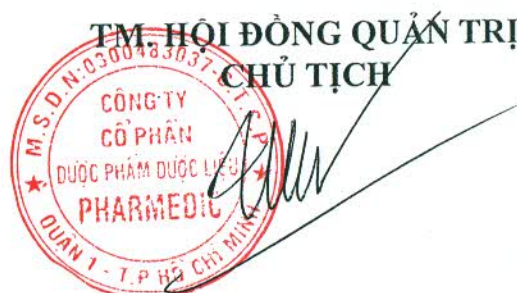 TM. HỘI ĐỒNG QUẢN TRỊ
CHỦ TỊCH
M.S.D.N:0300483037-C.T.C.P
CÔNG TY
CỔ PHẦN
DƯỢC PHẨM DƯỢC LIỆU
PHARMEDIC
QUẬN 1 - T.P HỒ CHÍ MINH